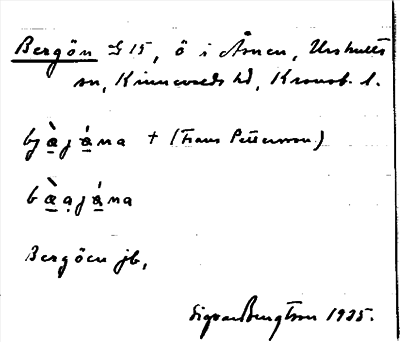 Bergön L 15, ö i Åsnen, Urshults
sn, Kinnevalds hd, Kronob. l.
bj æ̀ j á na + (Frans Pettersson)
b æ̀ ạ j á na
Bergöen jb,
Sigvard Bengtsson 1935.